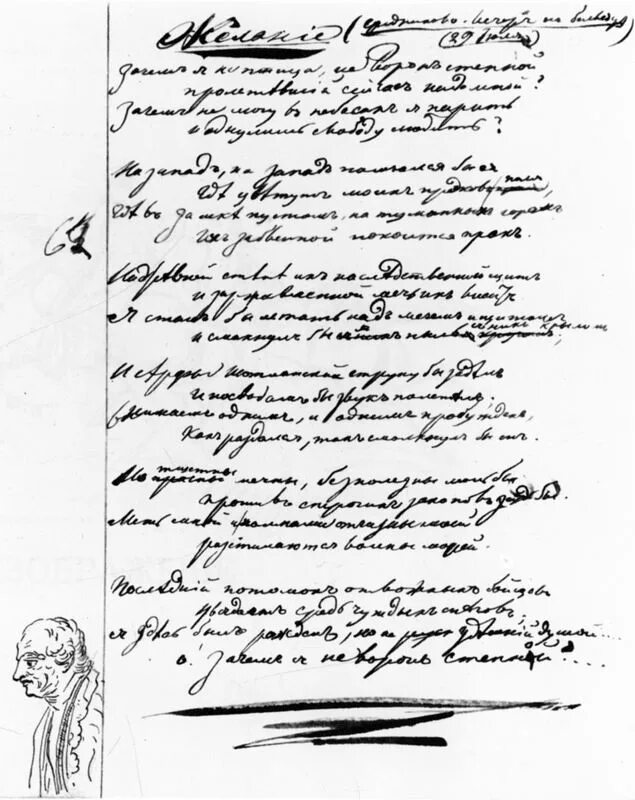 Желаніе (Середниково. Вечеръ на бельведерѣ)
(29 Іюля)
Зачемъ я не птица, не воронъ степной
пролетѣвшій сейчасъ надо мной?
Зачемъ не могу въ небесахъ я парить
и одну лишь свободу любить?
На западъ, на западъ помчался бы я
Гдѣ цвѣтутъ моихъ предковъ поля,
Гдѣ въ замкѣ пустомъ, на туманныхъ горахъ
Ихъ забвенной покоится прахъ.
На древной стѣнѣ ихъ наслѣдственной щитъ
и заржавленной мечь ихъ виситъ.
Я сталъ бы летать надъ мечемъ и щитомъ
и смахнулъ бы я пыль съ нихъ крыломъ;
И Арфы шотланской струну бы задѣлъ
И по сводамъ бы звукъ полетѣлъ;
Внимаемъ однимъ, и однимъ пробужденъ,
Какъ раздался, такъ смолкнулъ бы онъ.
Но тщетны мечты, безполезны мольбы
противъ строгихъ законовъ судьбы.
Межъ мной и холмами отчизны моей
разстилаются волны морей.
Послѣдній потомокъ отважныхъ бойцовъ
увядаетъ средь чуждыхъ снѣговъ.
Я здѣсь былъ рожденъ, но не здѣшній душой....
О! зачемъ я не воронъ степной?....